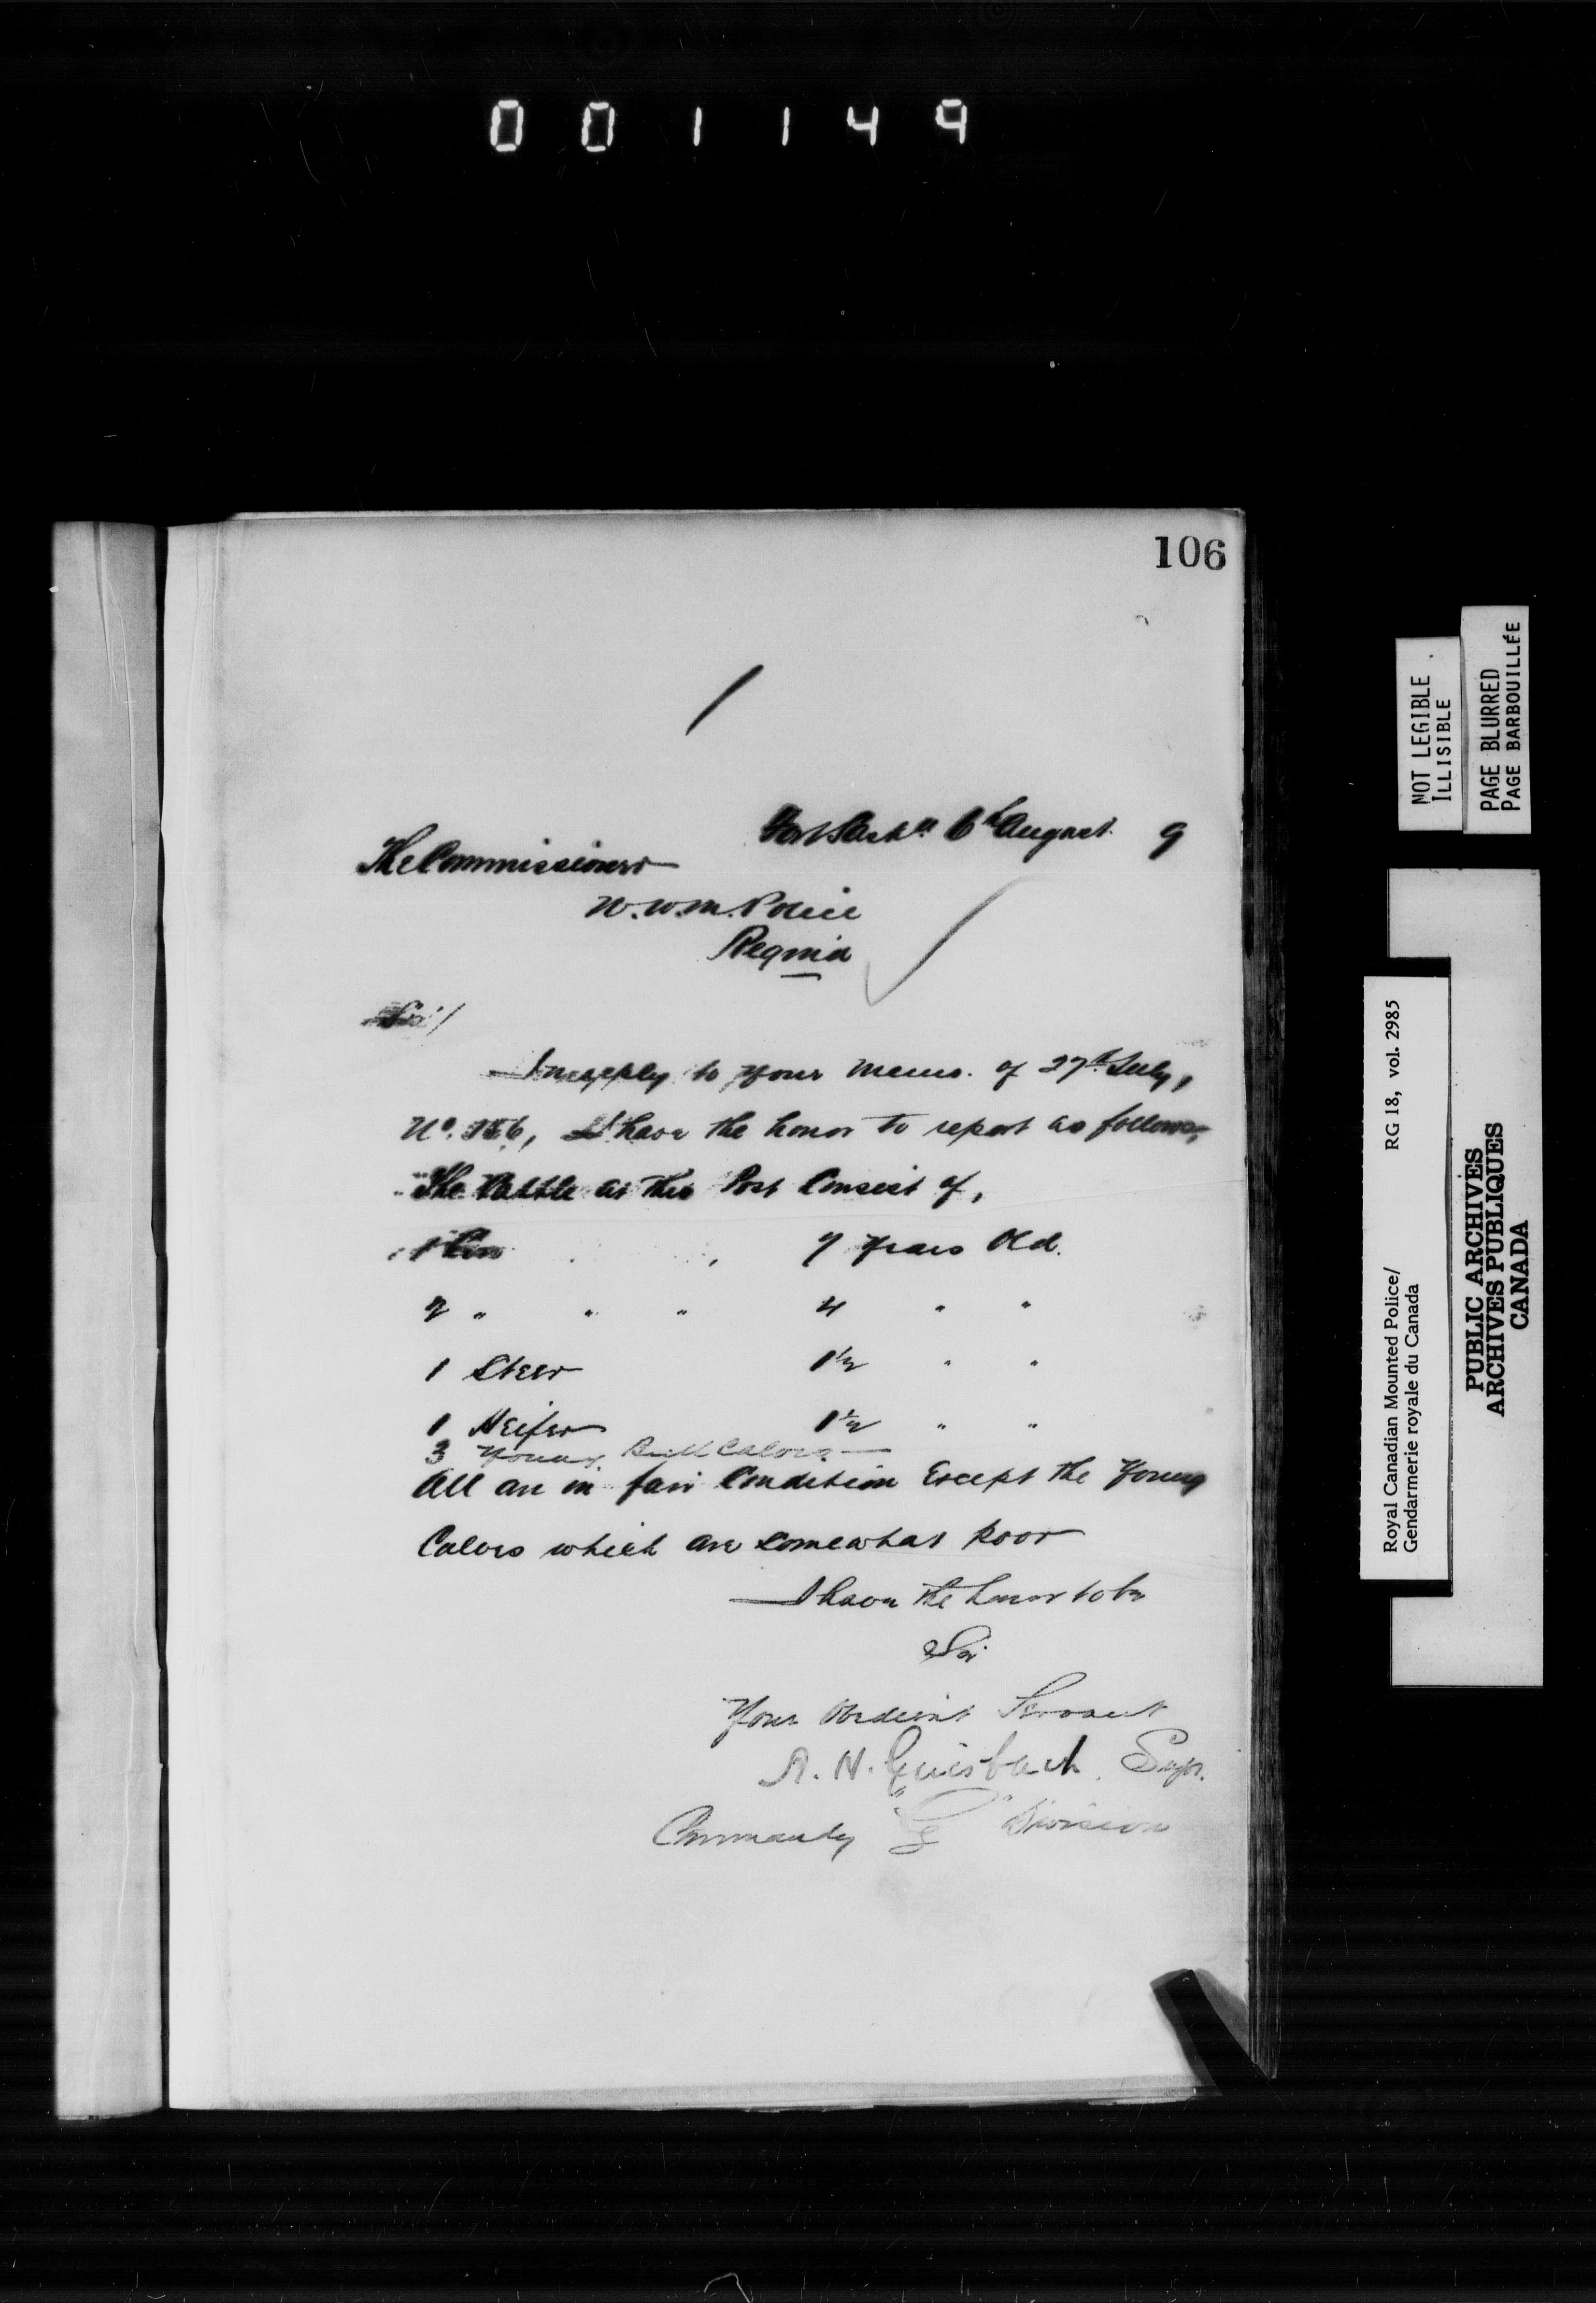 001149
106
Fort Sask'n 6th August 9
The Commissioner
N.W.M. Police
Regina
Sir/
In reply to your memo. of 27th July,
No. 156, I have the honor to report as follows,
The Cattle at this Post Consist of,
1 Cow , 7 Years Old.
2 " " " 4 " "
1 Steer 1½ " "
1 Heifer 1½ " "
3 Young Bull Calves
All are in fair Condition Except the Young
Calves which are somewhat poor
I have the honor to be
Sir
Your Obedient Servant
A. H. Griesbach Supt.
Commandg "G" Division
NOT LEGIBLE
ILLISIBLE
PAGE BLURRED
PAGE BARBOUILLÉE
Royal Canadian Mounted Police/ RG 18, vol. 2985
Gendarmerie royale du Canada
PUBLIC ARCHIVES
ARCHIVES PUBLIQUES
CANADA